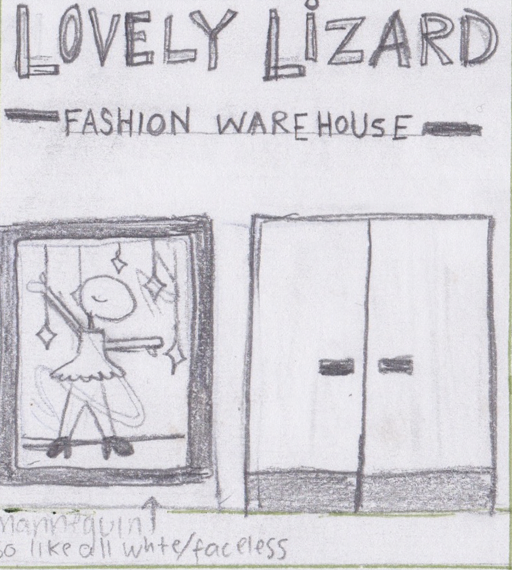 LOVELY LiZARD
FASHION WAREHOUSE
mannequin
so like all white/faceless